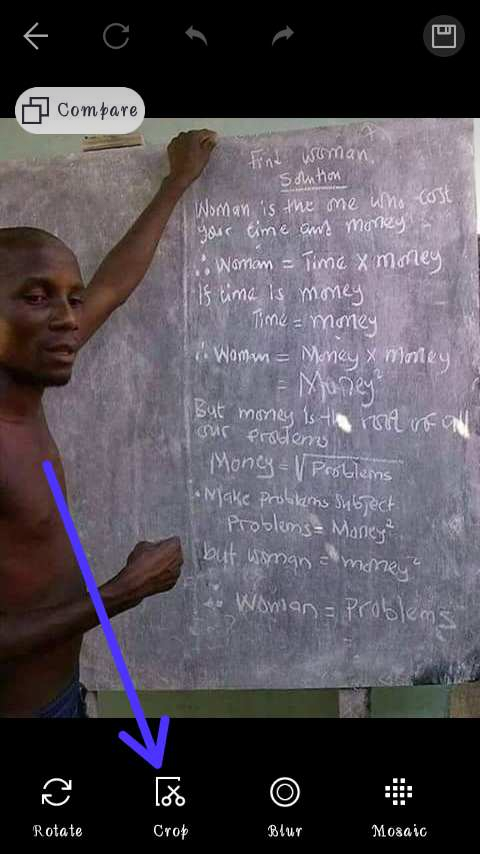 Compare
Find woman.
Solution
Woman is the one who cost
your time and money
∴ Woman = Time X money
If time is money
Time = money
∴ Woman = Money x money
= Money²
But money is the root of all
our problems
Money = √Problems
• Make problems subject
Problems = Money²
but woman = money²
∴ Woman = Problems
Rotate Crop Blur Mosaic